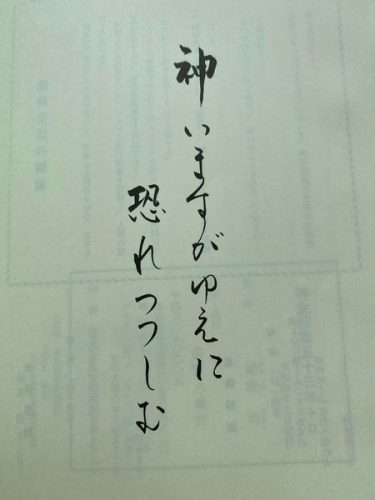 神いますがゆえに
恐れつつしむ